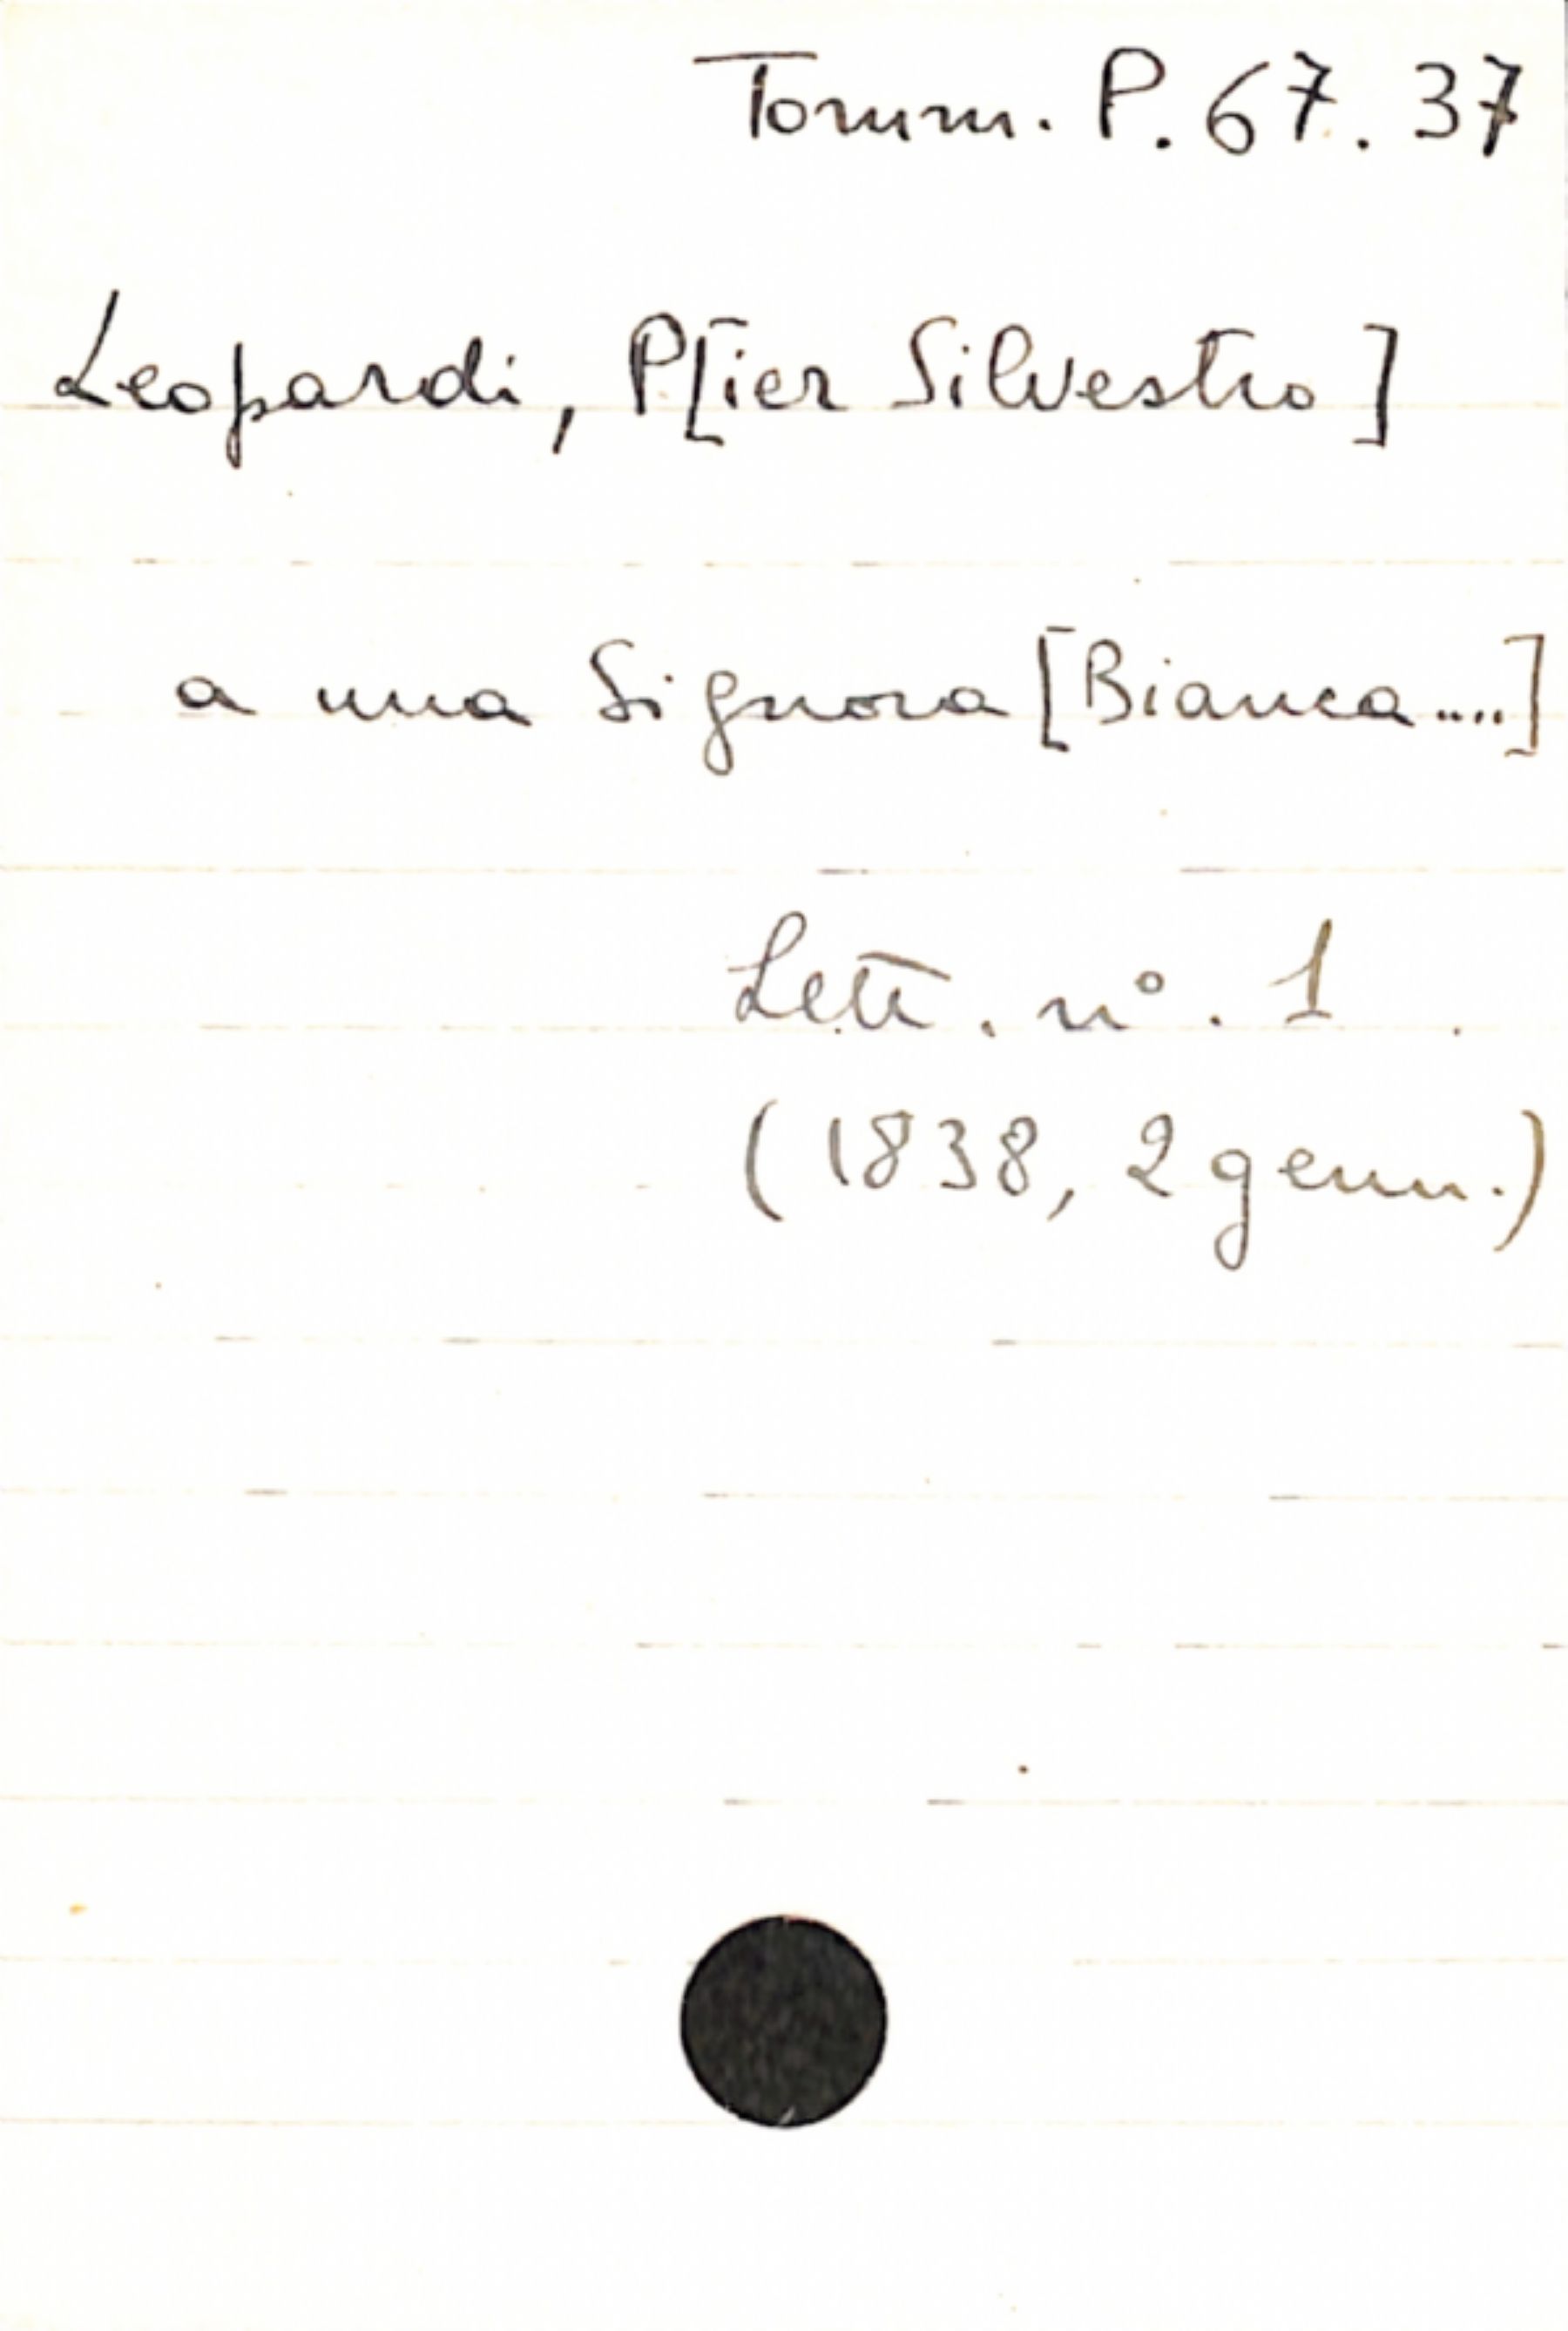 Tomm. P. 67. 37
Leopardi, P[ier Silvestro]
a una Signora [Bianca....]
Lett. n°. 1
(1838, 2 genn.)